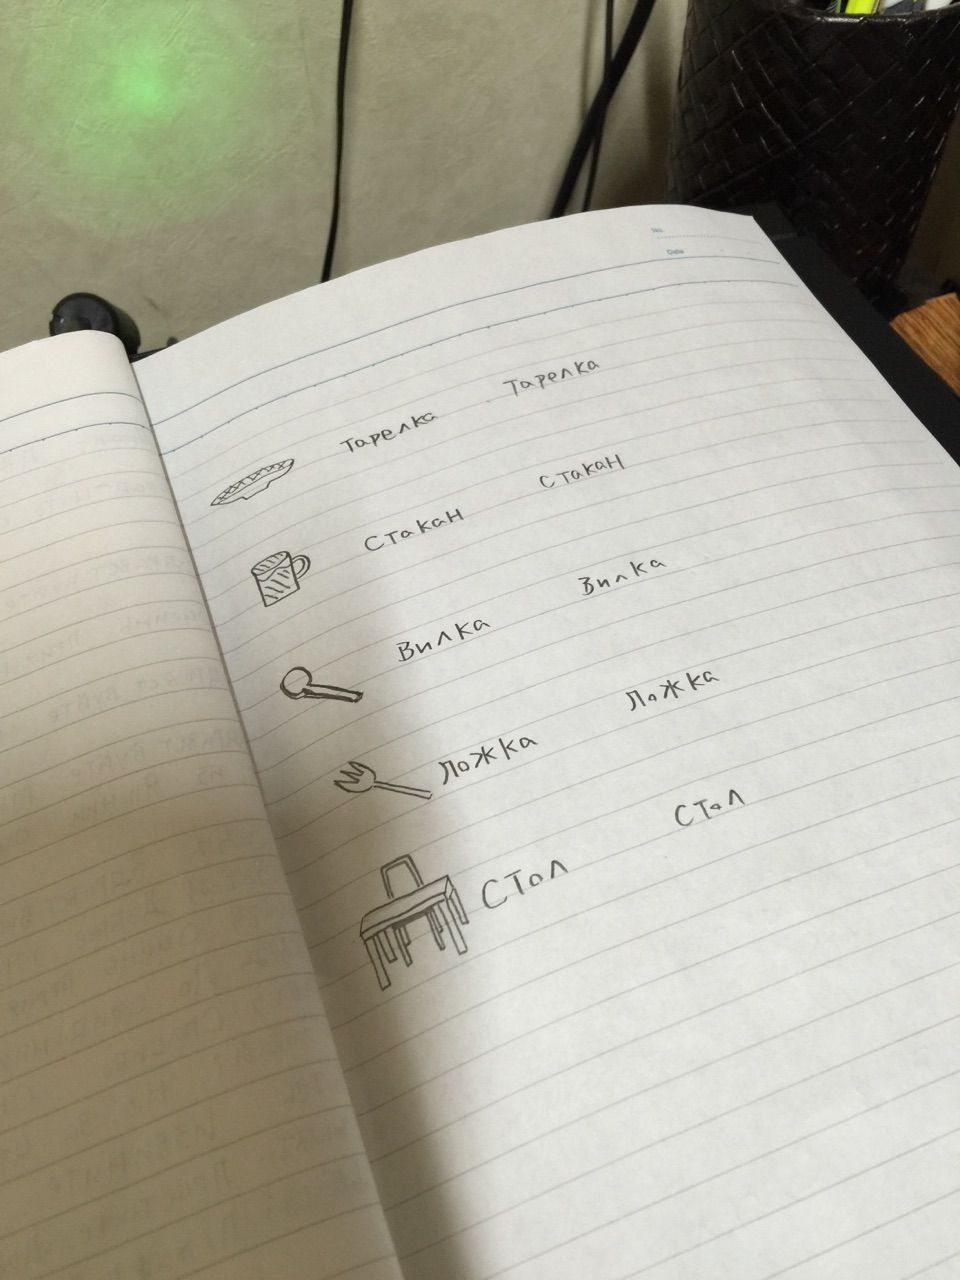 No.
Date
Тарелка Тарелка
Стакан Стакан
Вилка Вилка
Ложка Ложка
Стол Стол